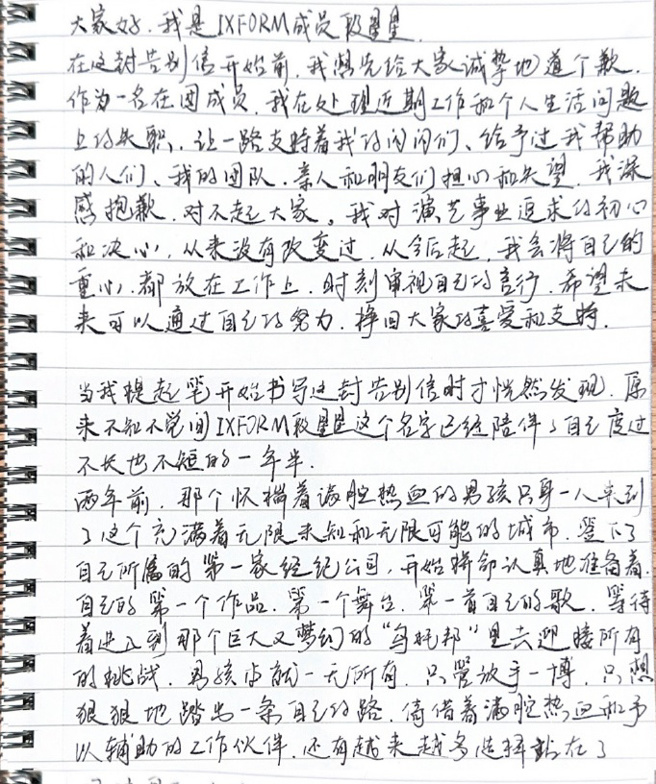 大家好,我是IXFORM成员段星星.
在这封告别信开始前,我想先给大家诚挚地道个歉.
作为一名在团成员,我在处理近期工作和个人生活问题
上的失职,让一路支持着我的闪闪们、给予过我帮助
的人们、我的团队、亲人和朋友们担心和失望,我深
感抱歉,对不起大家。我对演艺事业追求的初心
和决心,从来没有改变过,从今后起,我会将自己的
重心,都放在工作上,时刻审视自己的言行,希望未
来可以通过自己的努力,挣回大家的喜爱和支持.
当我提起笔开始书写这封告别信时才恍然发现,原
来不知不觉间IXFORM段星星这个名字已经陪伴了自己度过
不长也不短的一年半.
两年前,那个怀揣着满腔热血的男孩只身一人来到
了这个充满着无限未知和无限可能的城市,签下了
自己所属的第一家经纪公司,开始拼命认真地准备着,
自己的第一个作品,第一个舞台,第一首自己的歌,等待
着进入到那个巨大又梦幻的"乌托邦"里去迎接所有
的挑战,男孩本就一无所有,只管放手一博,只想
狠狠地踏出一条自己的路,倚借着满腔热血和予
以辅助的工作伙伴,还有越来越多选择站在了